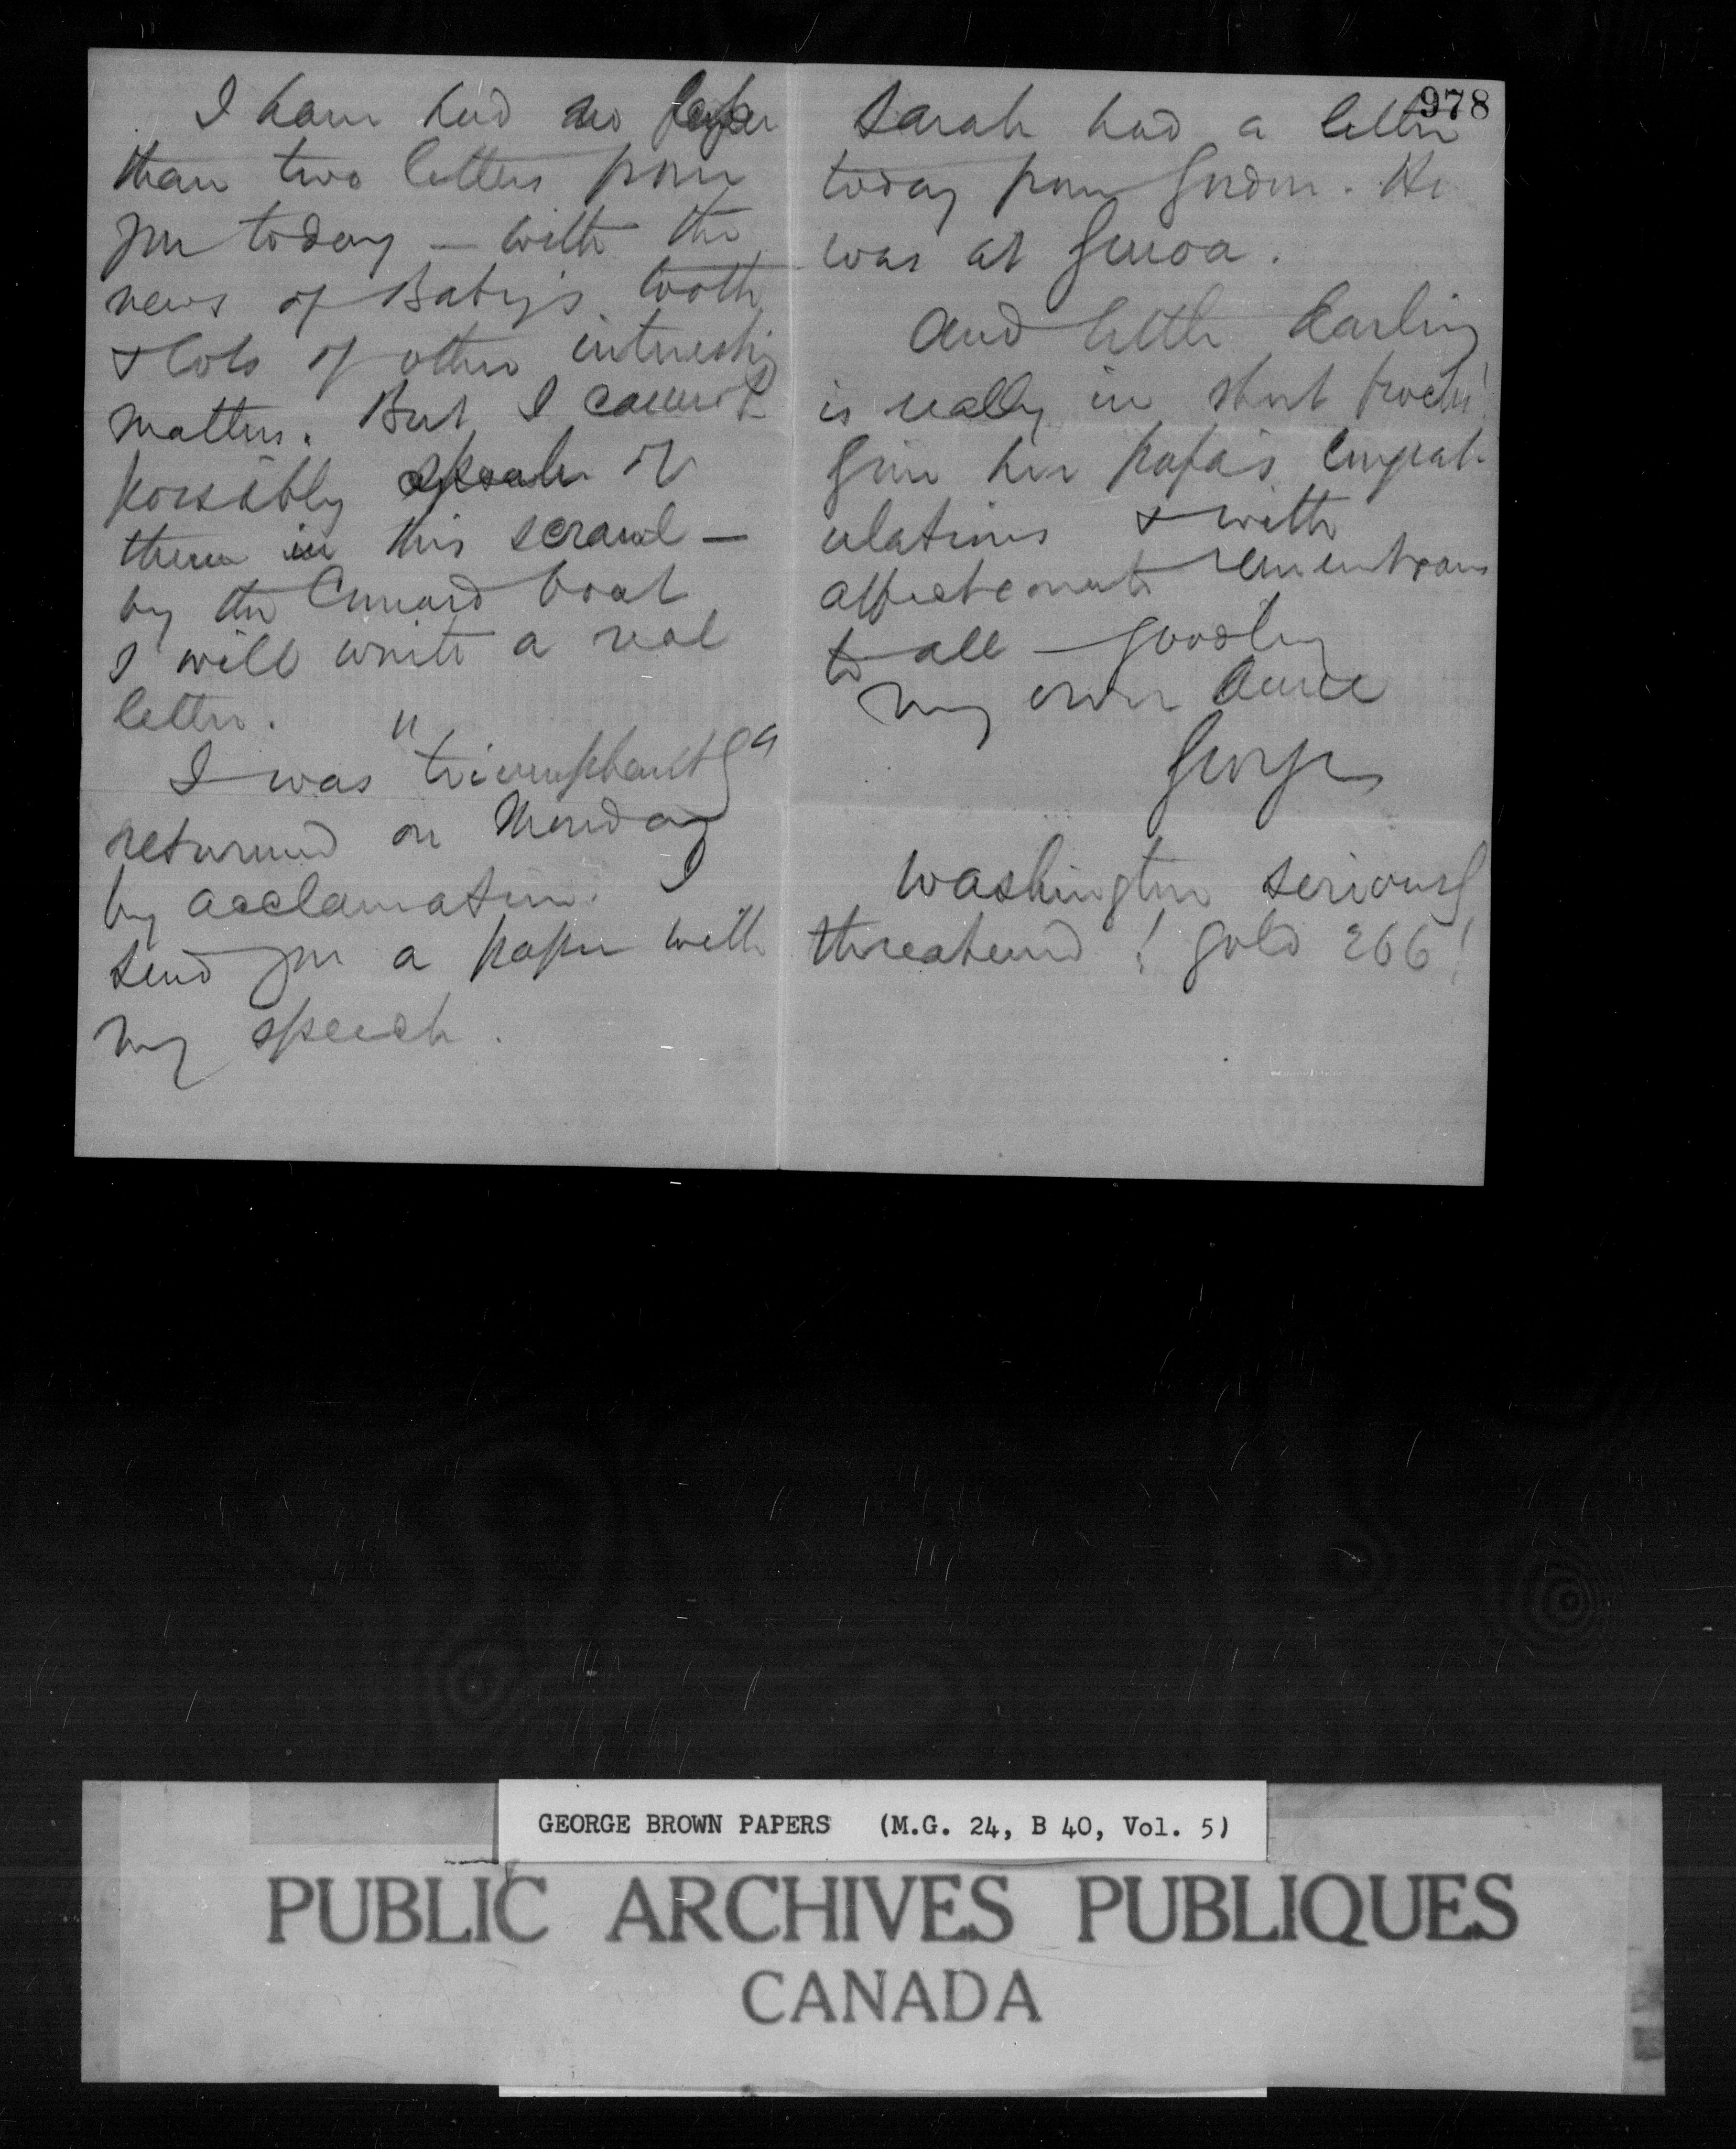 I have had no fewer
than two letters from
you today — with the
news of Baby's tooth
& lots of other interesting
matters. But I cannot
possibly speak of
them in this scrawl —
by the Cunard boat
I will write a real
letter.
I was "triumphantly"
returned on Monday
by acclamation. I
send you a paper with
my speech.
978
Sarah had a letter
today from Gordon. He
was at Genoa.
And little darling
is really in short frocks!
Give her papa's congrat-
ulations & with
affectionate remembrances
to all — goodby
my own Annie
George
Washington seriously
threatened! gold 266!
GEORGE BROWN PAPERS (M.G. 24, B 40, Vol. 5)
PUBLIC ARCHIVES PUBLIQUES
CANADA